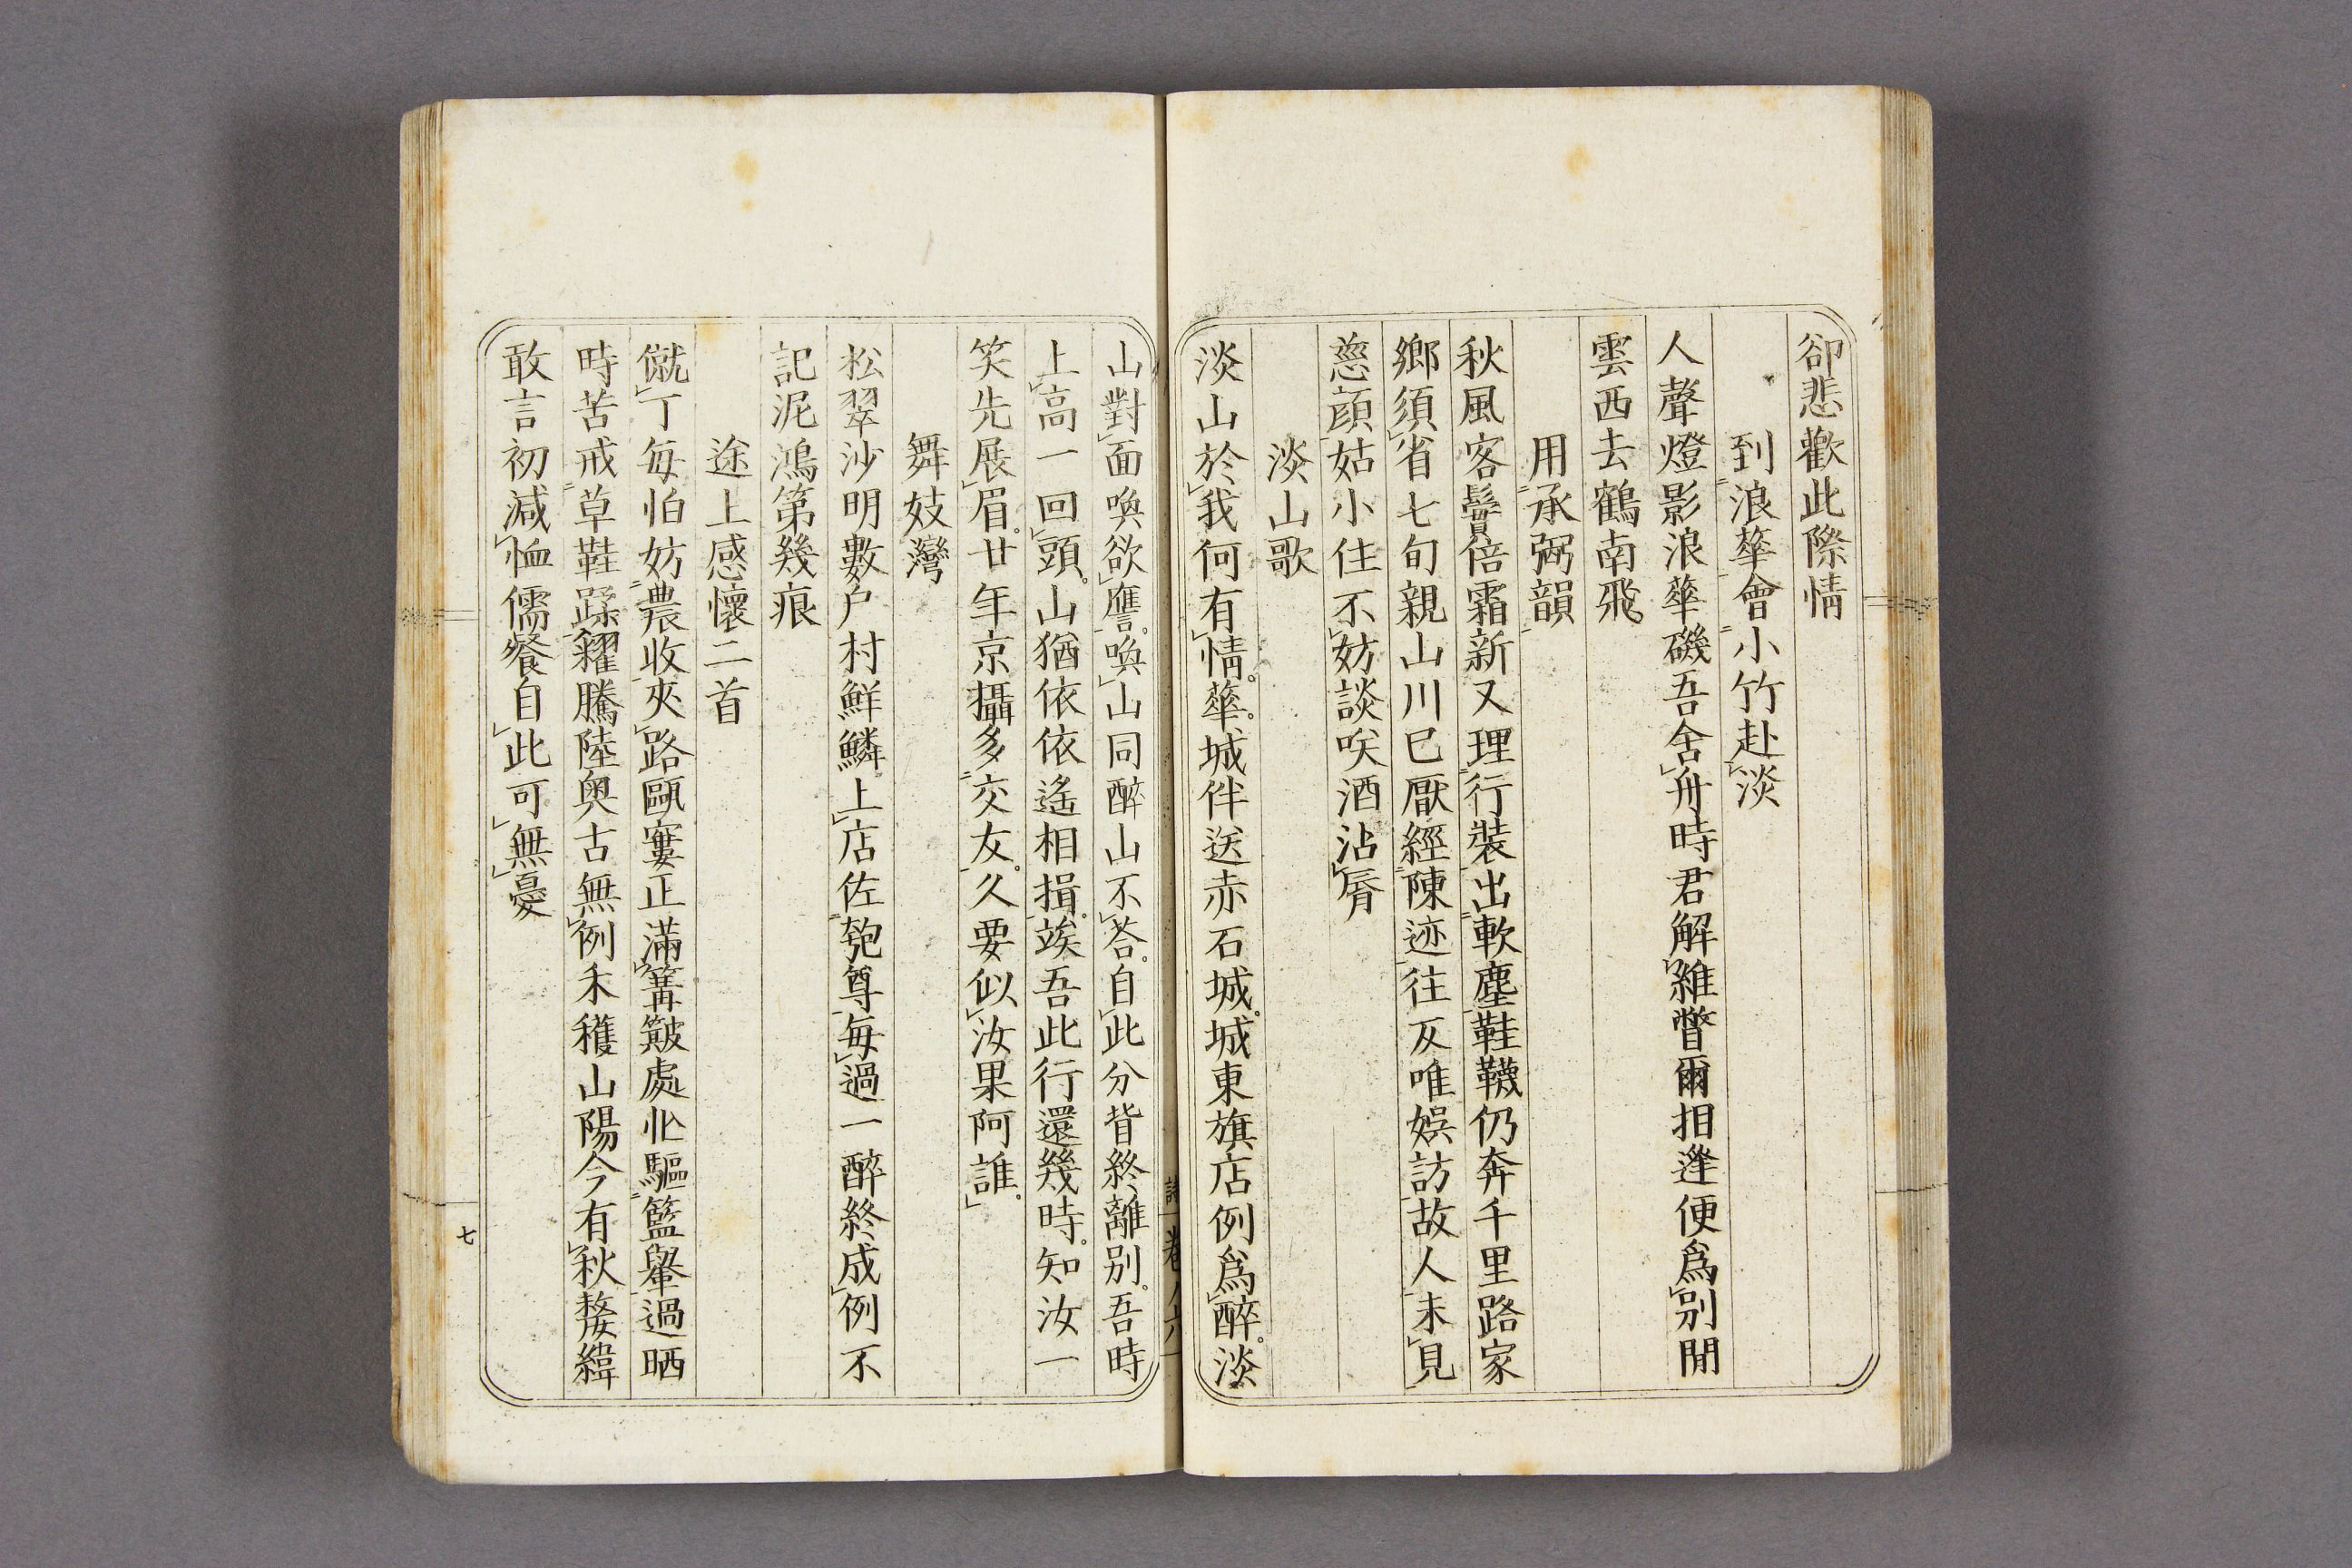 卻悲歡此際情
到浪華會小竹赴淡
人聲燈影浪華磯吾舍舟時君解維瞥爾相逢便爲別閒
雲西去鶴南飛
用承弼韻
秋風客鬢倍霜新又理行裝出軟塵鞋韈仍奔千里路家
鄉須省七旬親山川已厭經陳迹往反唯娯訪故人未見
慈顔姑小住不妨談咲酒沾脣
淡山歌
淡山於我何有情華城伴送赤石城城東旗店例爲醉淡
山對面喚欲譍喚山同醉山不荅自此分背終離別吾時
上高一回頭山猶依依遙相揖竢吾此行還幾時知汝一
笑先展眉廿年京攝多交友久要似汝果阿誰
舞妓灣
松翠沙明數户村鮮鱗上店佐匏尊每過一醉終成例不
記泥鴻第幾痕
途上感懷二首
僦丁每怕妨農收夾路甌窶正滿篝簸處
驅籃轝過晒
時苦戒草鞋蹂糶騰陸奥古無例禾穫山陽今有秋嫠緯
敢言初減恤儒餐自此可無憂
卷八
七